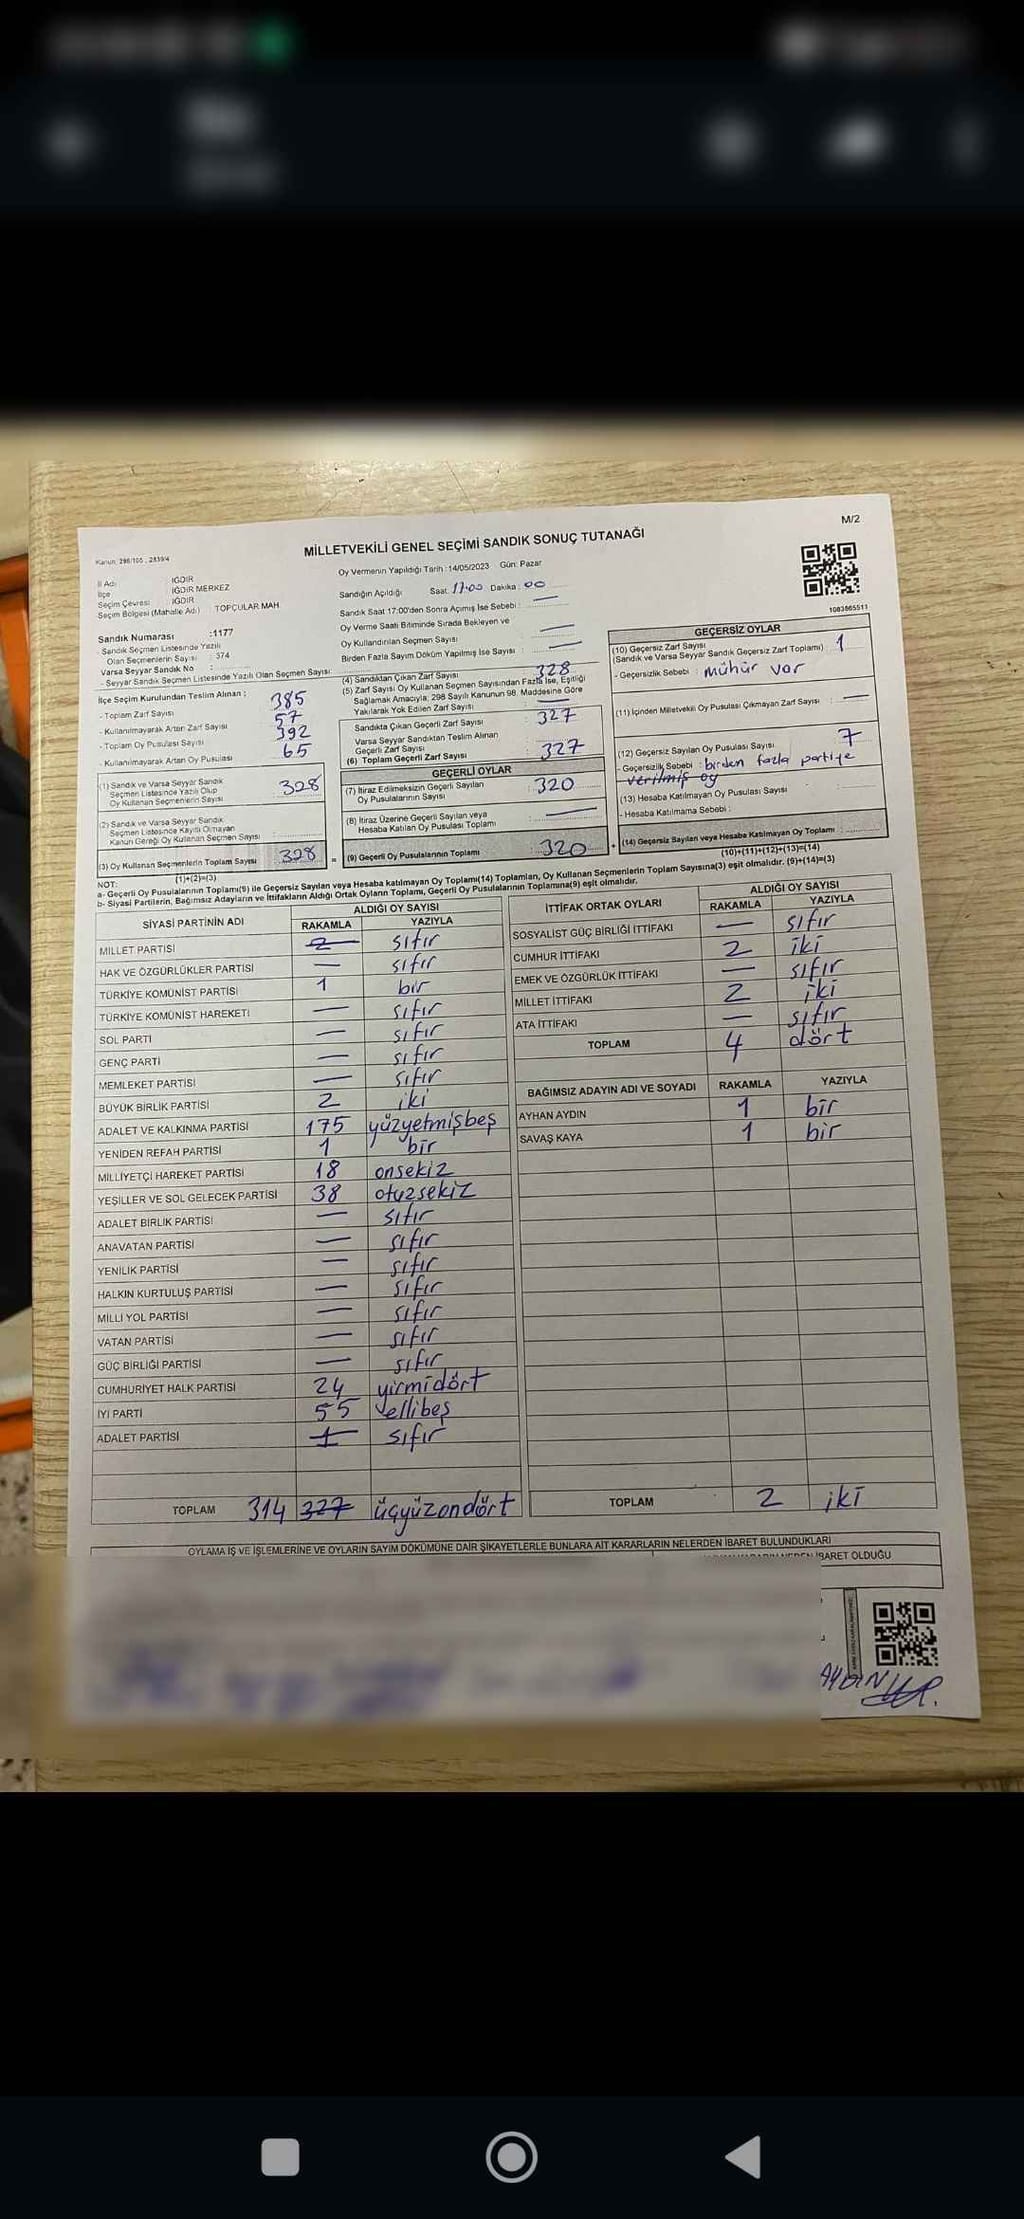 M/2
MİLLETVEKİLİ GENEL SEÇİMİ SANDIK SONUÇ TUTANAĞI
Kanun: 298/105 , 2839/4
İl Adı IĞDIR
İlçe IĞDIR MERKEZ
Seçim Çevresi IĞDIR
Seçim Bölgesi (Mahalle Adı) TOPÇULAR MAH
Sandık Numarası :1177
- Sandık Seçmen Listesinde Yazılı
Olan Seçmenlerin Sayısı : 374
Varsa Seyyar Sandık No :
- Seyyar Sandık Seçmen Listesinde Yazılı Olan Seçmen Sayısı
İlçe Seçim Kurulundan Teslim Alınan :
- Toplam Zarf Sayısı 385
- Kullanılmayarak Artan Zarf Sayısı 57
- Toplam Oy Pusulası Sayısı 392
- Kullanılmayarak Artan Oy Pusulası 65
(1) Sandık ve Varsa Seyyar Sandık
Seçmen Listesinde Yazılı Olup
Oy Kullanan Seçmenlerin Sayısı 328
(2) Sandık ve Varsa Seyyar Sandık
Seçmen Listesinde Kayıtlı Olmayan
Kanun Gereği Oy Kullanan Seçmen Sayısı
(3) Oy Kullanan Seçmenlerin Toplam Sayısı 328
(1)+(2)=(3)
Oy Vermenin Yapıldığı Tarih : 14/05/2023 Gün: Pazar
Sandığın Açıldığı Saat: 17:00 Dakika: 00
Sandık Saat 17:00'den Sonra Açımış İse Sebebi : —
Oy Verme Saati Bitiminde Sırada Bekleyen ve
Oy Kullandırılan Seçmen Sayısı : —
Birden Fazla Sayım Döküm Yapılmış İse Sayısı : —
(4) Sandıktan Çıkan Zarf Sayısı 328
(5) Zarf Sayısı Oy Kullanan Seçmen Sayısından Fazla İse, Eşitliği
Sağlamak Amacıyla; 298 Sayılı Kanunun 98. Maddesine Göre
Yakılarak Yok Edilen Zarf Sayısı —
Sandıkta Çıkan Geçerli Zarf Sayısı : 327
Varsa Seyyar Sandıktan Teslim Alınan
Geçerli Zarf Sayısı
(6) Toplam Geçerli Zarf Sayısı : 327
GEÇERLİ OYLAR
(7) İtiraz Edilmeksizin Geçerli Sayılan
Oy Pusulalarının Sayısı : 320
(8) İtiraz Üzerine Geçerli Sayılan veya
Hesaba Katılan Oy Pusulası Toplamı : —
= (9) Geçerli Oy Pusulalarının Toplamı : 320
1083865511
GEÇERSİZ OYLAR
(10) Geçersiz Zarf Sayısı
(Sandık ve Varsa Seyyar Sandık Geçersiz Zarf Toplamı) 1
- Geçersizlik Sebebi : mühür var
(11) İçinden Milletvekili Oy Pusulası Çıkmayan Zarf Sayısı : —
(12) Geçersiz Sayılan Oy Pusulası Sayısı : 7
- Geçersizlik Sebebi : birden fazla partiye
verilmiş oy
(13) Hesaba Katılmayan Oy Pusulası Sayısı :
- Hesaba Katılmama Sebebi :
+ (14) Geçersiz Sayılan veya Hesaba Katılmayan Oy Toplamı :
(10)+(11)+(12)+(13)=(14)
NOT:
a- Geçerli Oy Pusulalarının Toplamı(9) ile Geçersiz Sayılan veya Hesaba katılmayan Oy Toplamı(14) Toplamları, Oy Kullanan Seçmenlerin Toplam Sayısına(3) eşit olmalıdır. (9)+(14)=(3)
b- Siyasi Partilerin, Bağımsız Adayların ve İttifakların Aldığı Ortak Oyların Toplamı, Geçerli Oy Pusulalarının Toplamına(9) eşit olmalıdır.
SİYASİ PARTİNİN ADI ALDIĞI OY SAYISI
RAKAMLA YAZIYLA
MİLLET PARTİSİ 2 sıfır
HAK VE ÖZGÜRLÜKLER PARTİSİ — sıfır
TÜRKİYE KOMÜNİST PARTİSİ 1 bir
TÜRKİYE KOMÜNİST HAREKETİ — sıfır
SOL PARTİ — sıfır
GENÇ PARTİ — sıfır
MEMLEKET PARTİSİ — sıfır
BÜYÜK BİRLİK PARTİSİ 2 iki
ADALET VE KALKINMA PARTİSİ 175 yüzyetmişbeş
YENİDEN REFAH PARTİSİ 1 bir
MİLLİYETÇİ HAREKET PARTİSİ 18 onsekiz
YEŞİLLER VE SOL GELECEK PARTİSİ 38 otuzsekiz
ADALET BİRLİK PARTİSİ — sıfır
ANAVATAN PARTİSİ — sıfır
YENİLİK PARTİSİ — sıfır
HALKIN KURTULUŞ PARTİSİ — sıfır
MİLLİ YOL PARTİSİ — sıfır
VATAN PARTİSİ — sıfır
GÜÇ BİRLİĞİ PARTİSİ — sıfır
CUMHURİYET HALK PARTİSİ 24 yirmidört
İYİ PARTİ 55 ellibeş
ADALET PARTİSİ 1 sıfır
TOPLAM 314 327 üçyüzondört
İTTİFAK ORTAK OYLARI ALDIĞI OY SAYISI
RAKAMLA YAZIYLA
SOSYALİST GÜÇ BİRLİĞİ İTTİFAKI — sıfır
CUMHUR İTTİFAKI 2 iki
EMEK VE ÖZGÜRLÜK İTTİFAKI — sıfır
MİLLET İTTİFAKI 2 iki
ATA İTTİFAKI — sıfır
TOPLAM 4 dört
BAĞIMSIZ ADAYIN ADI VE SOYADI RAKAMLA YAZIYLA
AYHAN AYDIN 1 bir
SAVAŞ KAYA 1 bir
TOPLAM 2 iki
OYLAMA İŞ VE İŞLEMLERİNE VE OYLARIN SAYIM DÖKÜMÜNE DAİR ŞİKAYETLERLE BUNLARA AİT KARARLARIN NELERDEN İBARET BULUNDUKLARI
İBARET OLDUĞU
AYDIN